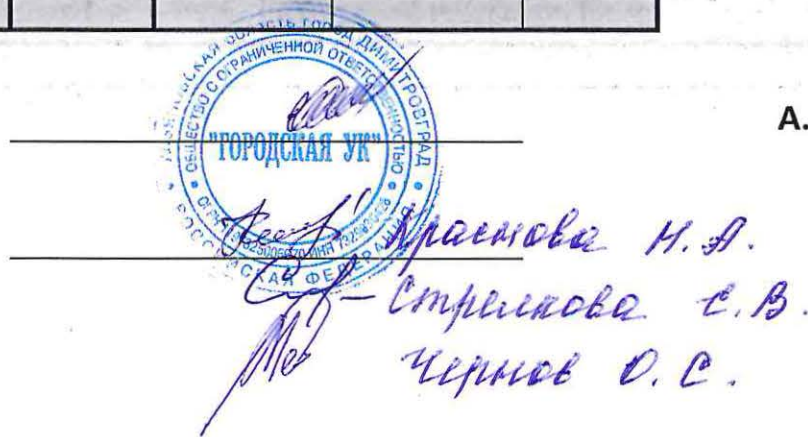 А.
ОБЛАСТЬ ГОРОД ДИМИТРОВГРАД
ОБЩЕСТВО С ОГРАНИЧЕННОЙ ОТВЕТСТВЕННОСТЬЮ
"ГОРОДСКАЯ УК"
РОССИЙСКАЯ ФЕДЕРАЦИЯ
Краснова Н.А.
Стрелкова Е.В.
Чернов О.С.